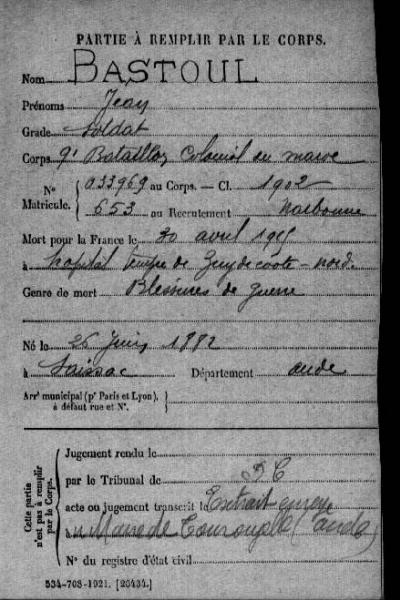 PARTIE À REMPLIR PAR LE CORPS.
Nom BASTOUL
Prénoms Jean
Grade Soldat
Corps 9e Bataillon Colonial du Maroc
N° Matricule. { 033969 au Corps. — Cl. 1902
653 au Recrutement Narbonne
Mort pour la France le 30 avril 1915
à hôpital temp.e de Zuydcoote - nord.
Genre de mort Blessures de guerre
Né le 26 Juin 1882
à Saissac Département aude
Arr¹ municipal (pr Paris et Lyon), à défaut rue et N°. {
Cette partie n'est pas à remplir par le Corps.
Jugement rendu le
par le Tribunal de
acte ou jugement transcrit le Extrait envoyé
au Maire de (aude)
N° du registre d'état civil
534-708-1921. [26434.]